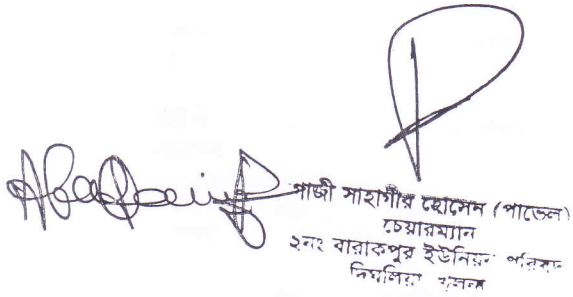 গাজী সাহাগীর হোসেন (পাভেল)
চেয়ারম্যান
২নং বারাকপুর ইউনিয়ন পরিষদ
দিঘলিয়া খুলনা